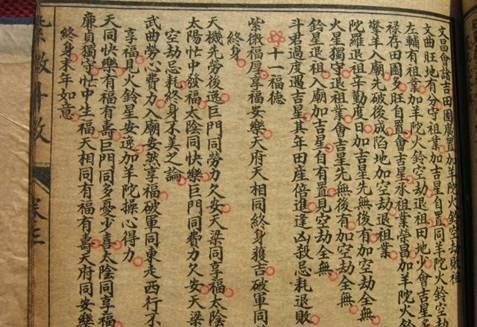 文昌會諸吉田園廣置加羊陀火鈴空劫敗祖
文曲旺地有分守祖業加吉星自置同羊陀火鈴空劫退祖
左輔有祖業加羊陀火鈴空劫退祖田地少會吉星
祿存田園多旺自置會吉星承祖業榮昌加羊陀火
擎羊入廟先破後成陷地加空劫退祖業
陀羅退祖辛勤度日加吉星先無後有加空劫全無
火星獨守退祖業會吉星先無後有加空劫全無
鈴星退祖入廟加吉星自有置見空劫全無
斗君過度遇吉星其年田產倍進逢凶殺忌耗退敗
十一福德
紫微福厚享福安樂天府天相同終身獲吉破軍同
終身
天機先勞後逸巨門同勞力欠安天梁同享福太陰
太陽忙中發福太陰同快樂巨門同費力欠安天梁
空劫忌耗終身不美之論
武曲勞心費力入廟安然享福破軍同東走西行不
享福見火鈴星安逸加羊陀操心得力
天同快樂有福有壽巨門同多憂少喜太陰同享福
廉貞獨守忙中生福天相同有福有壽天府同安樂
終身末年如意
紫微斗數 卷三